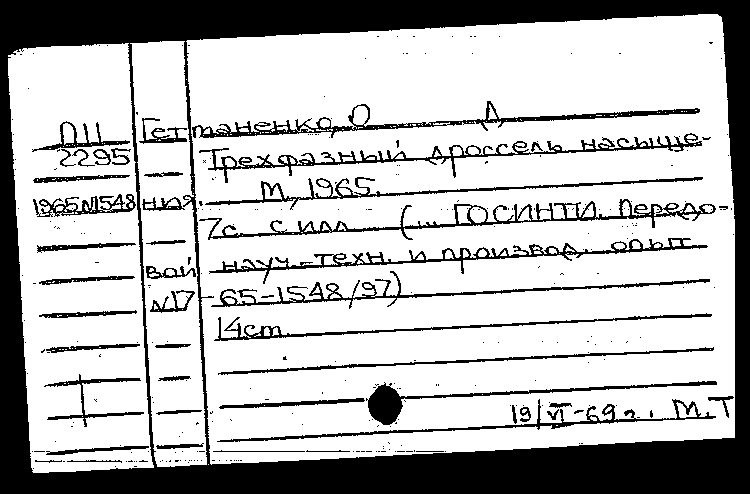 ПП Гетманенко, О Д
2295 Трехфазный дроссель насыще-
1965N1548 ния. М., 1965.
7с. с илл. (... ГОСИНТИ. Передо-
вой науч.-техн. и производ. опыт
N17-65-1548/97)
14cm
19/VI-69г. М.Т